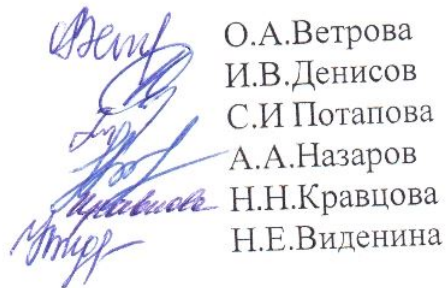 О.А.Ветрова
И.В.Денисов
С.И Потапова
А.А.Назаров
Н.Н.Кравцова
Н.Е.Виденина